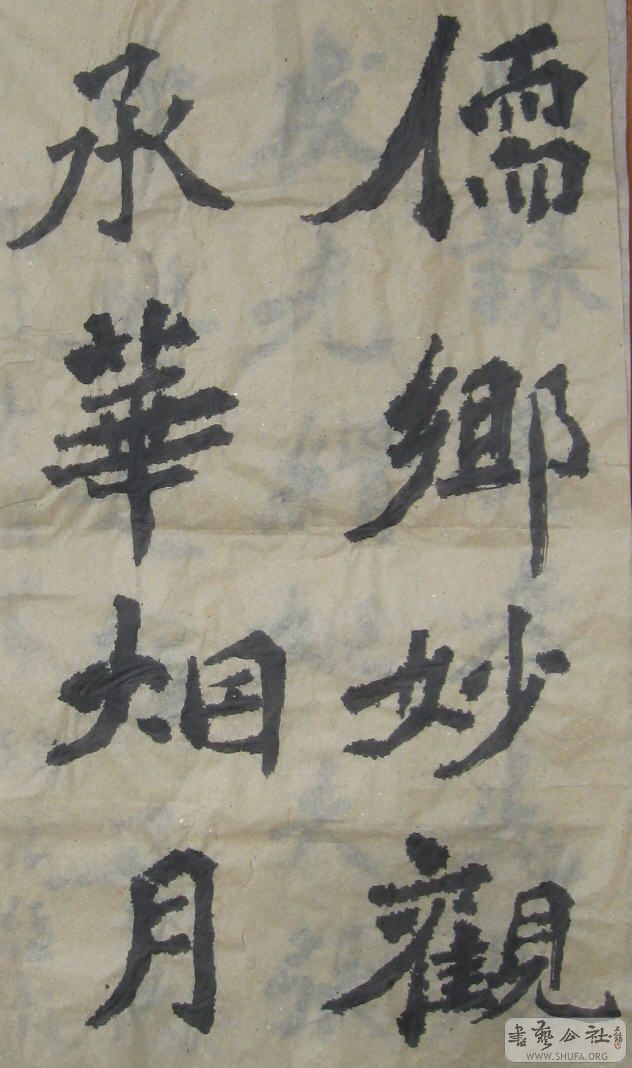 儒鄉妙觀
承華烟月
書藝公社
WWW.SHUFA.ORG